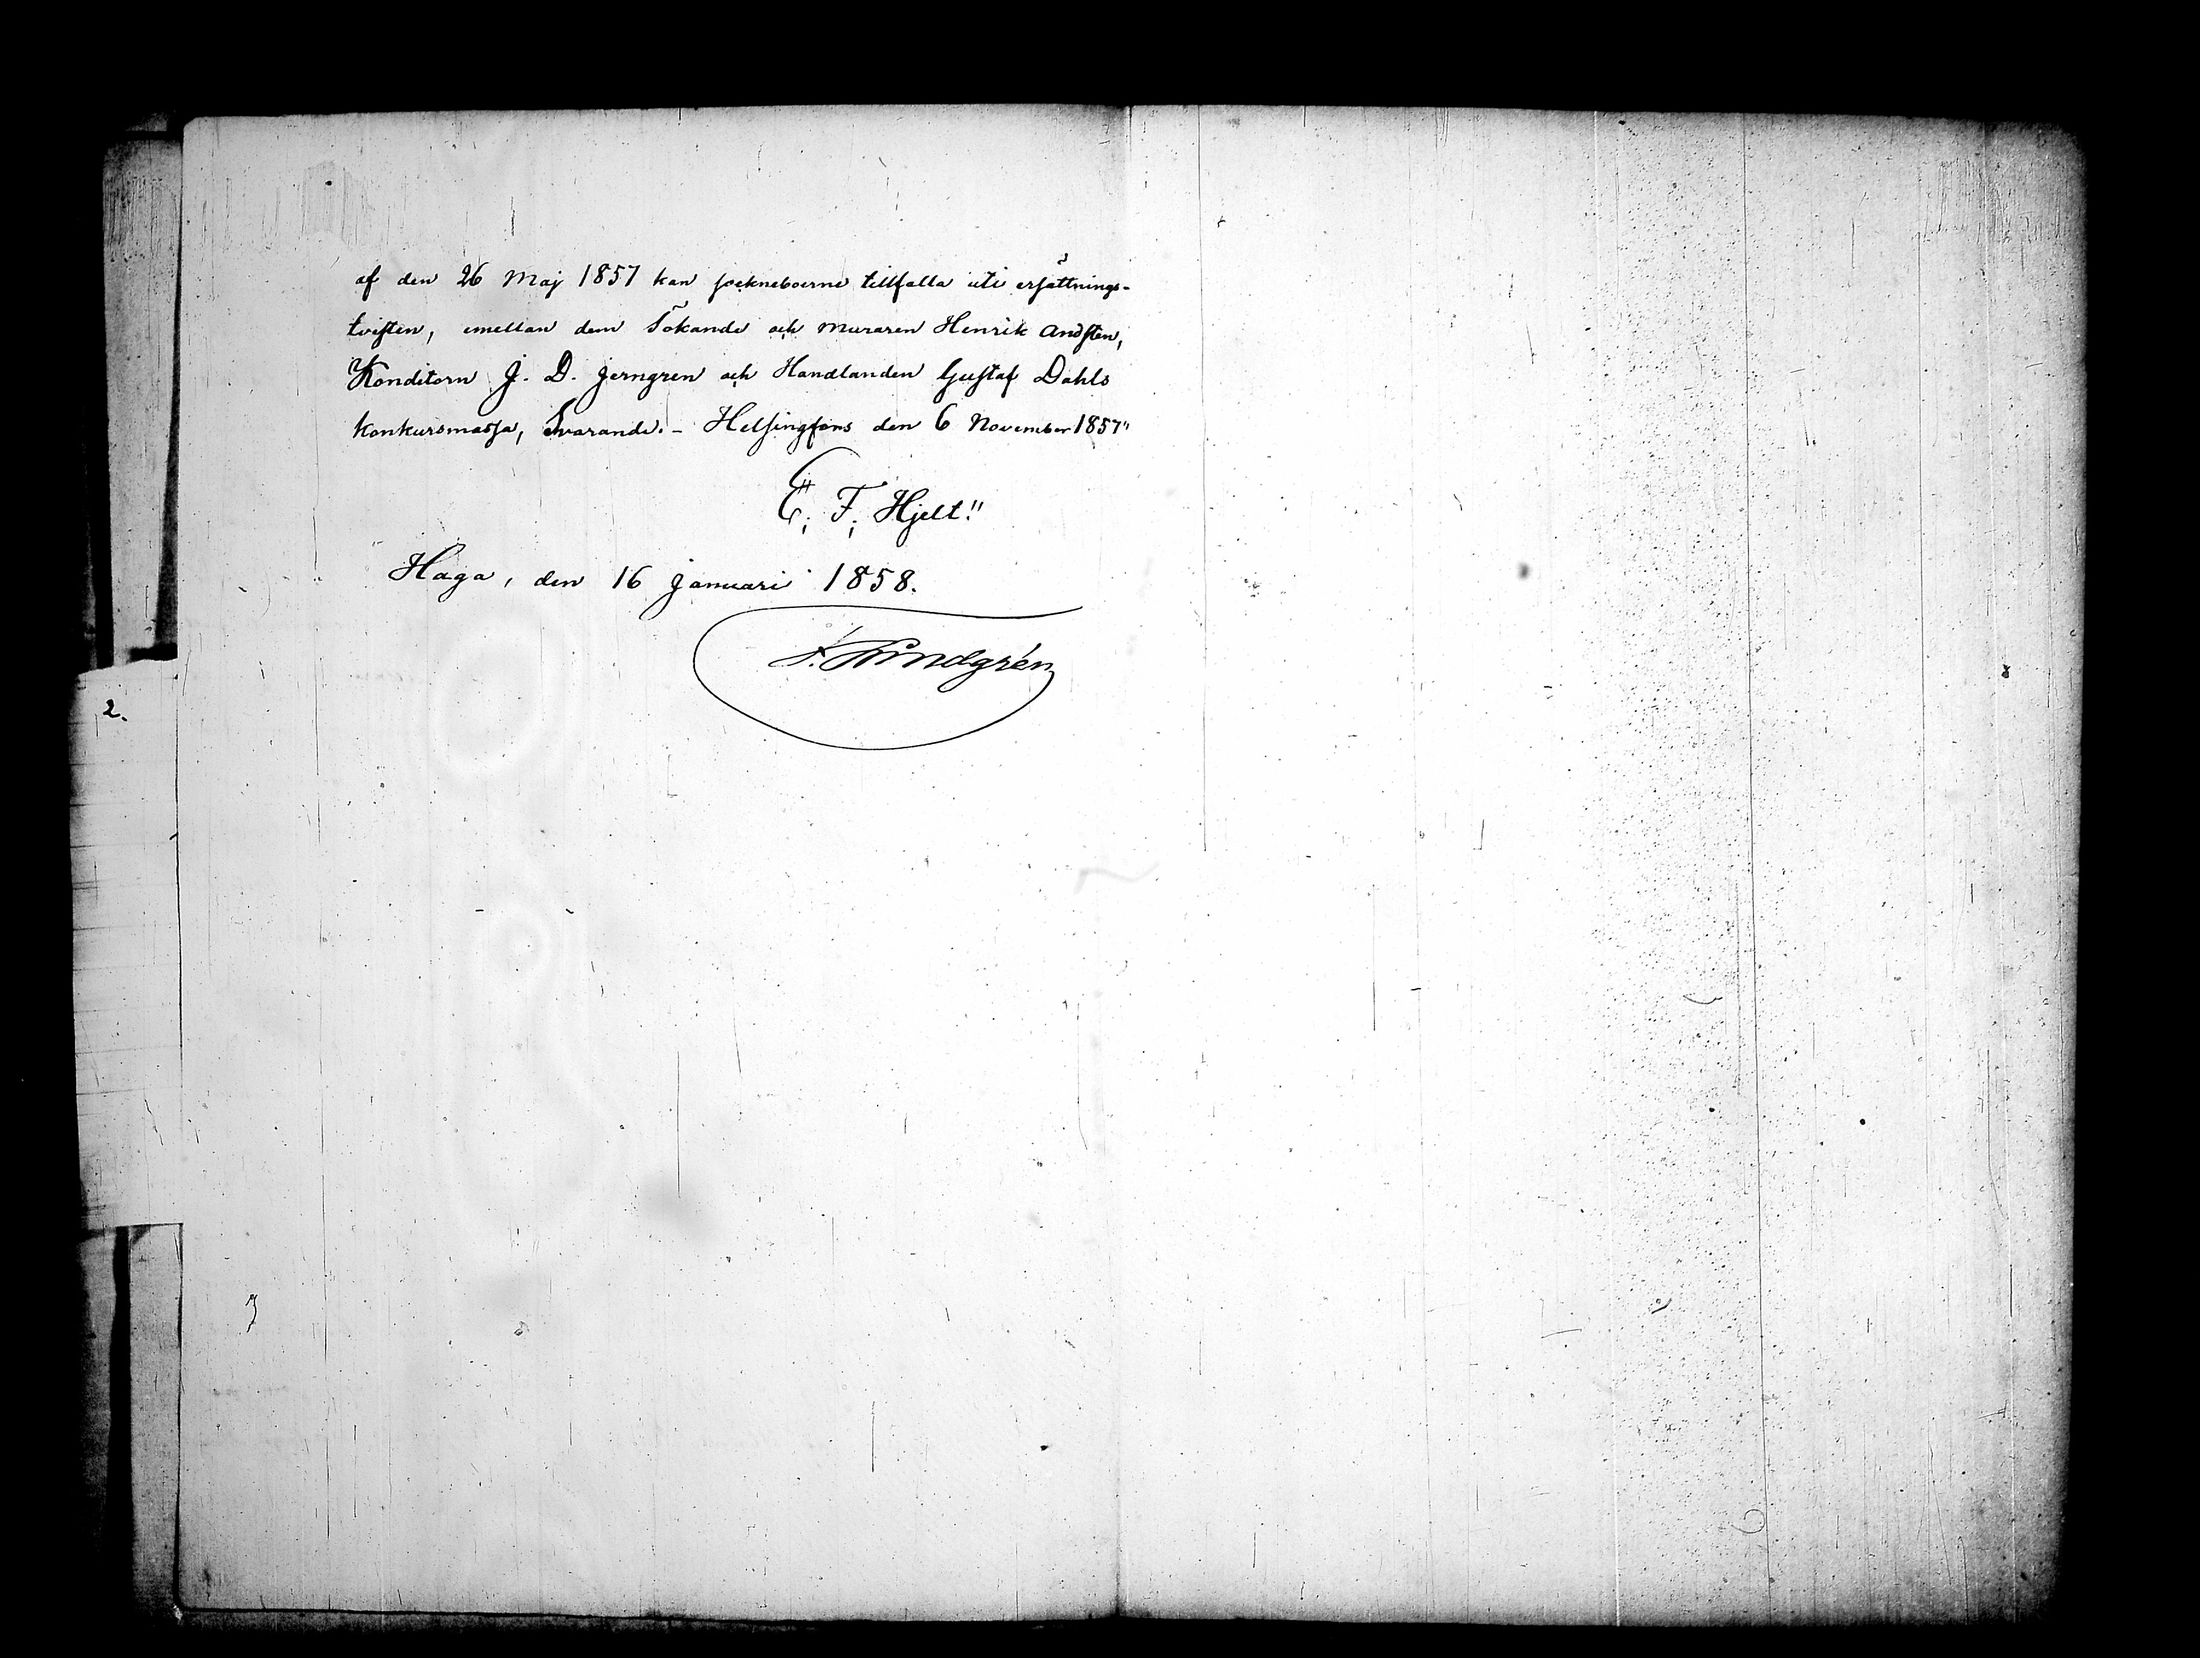 af den 26 Maj 1857 kan sockneboerne tillfalla uti ersättnings-
tvisten, emellan dem Sökande och muraren Henrik Andsten,
Konditorn J. D. Jerngren och Handlanden Gustaf Dahls
konkursmassa, Svarande. - Helsingfors den 6 November 1857"
E. F. Hjelt."
Haga, den 16 Januari 1858.
F. Lindgrén
2.